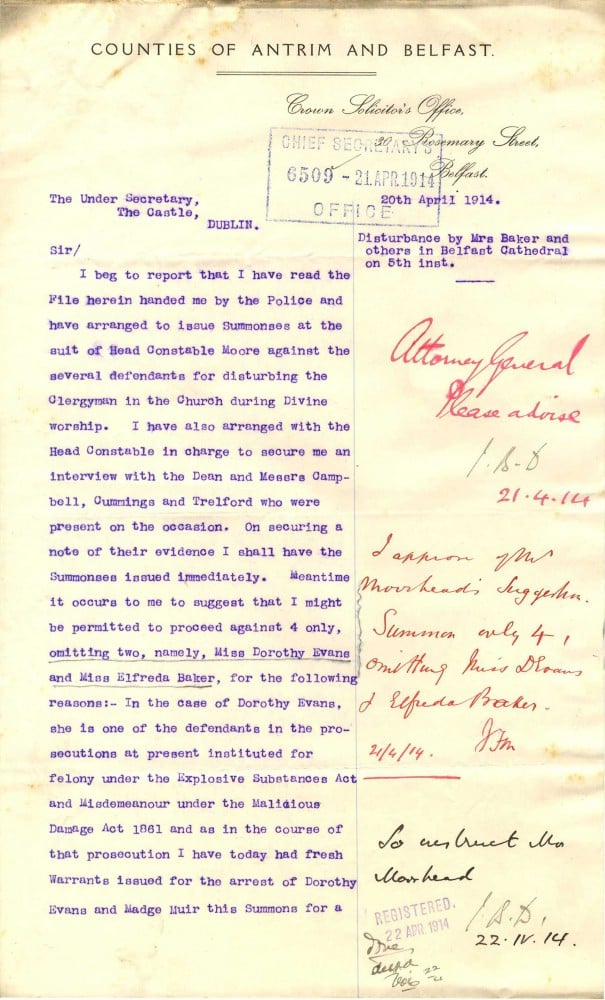 COUNTIES OF ANTRIM AND BELFAST.
Crown Solicitor's Office,
30 Rosemary Street,
Belfast.
CHIEF SECRETARY'S
6509 - 21 APR. 1914
OFFICE
20th April 1914.
The Under Secretary,
The Castle,
DUBLIN.
Disturbance by Mrs Baker and
others in Belfast Cathedral
on 5th inst.
Sir/
I beg to report that I have read the
File herein handed me by the Police and
have arranged to issue Summonses at the
suit of Head Constable Moore against the
several defendants for disturbing the
Clergyman in the Church during Divine
worship. I have also arranged with the
Head Constable in charge to secure me an
interview with the Dean and Messrs Camp-
bell, Cummings and Trelford who were
present on the occasion. On securing a
note of their evidence I shall have the
Summonses issued immediately. Meantime
it occurs to me to suggest that I might
be permitted to proceed against 4 only,
omitting two, namely, Miss Dorothy Evans
and Miss Elfreda Baker, for the following
reasons:- In the case of Dorothy Evans,
she is one of the defendants in the pro-
secutions at present instituted for
felony under the Explosive Substances Act
and Misdemeanour under the Malicious
Damage Act 1861 and as in the course of
that prosecution I have today had fresh
Warrants issued for the arrest of Dorothy
Evans and Madge Muir this Summons for a
Attorney General
Please advise
J.B-D
21.4.14
I approve of Mr
Moorhead's suggestion.
Summon only 4,
omitting Miss D Evans
& Elfreda Baker.
21/4/14.
So instruct Mr
Moorhead
J.B.D.
22.IV.14.
REGISTERED.
22 APR. 1914